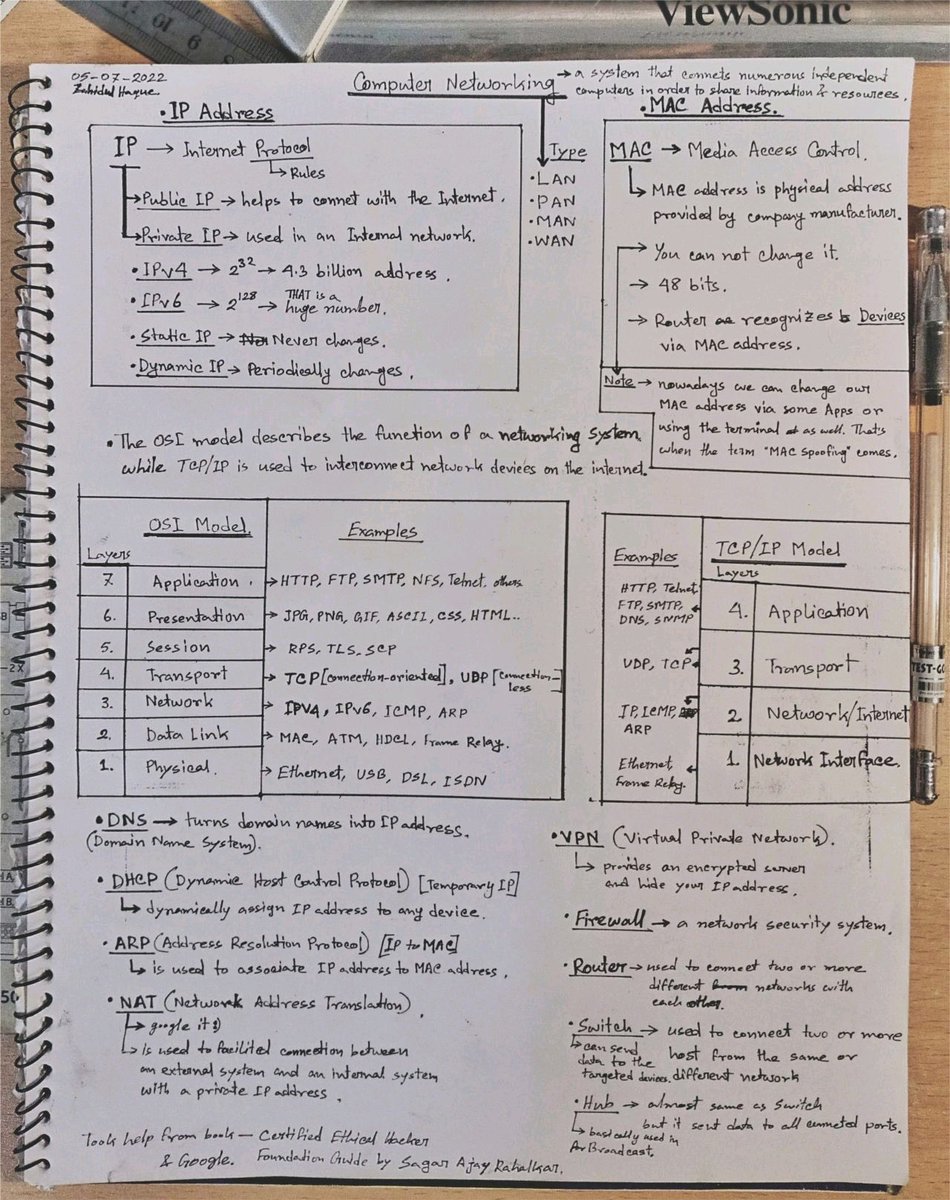 ViewSonic
05-07-2022
Zahidul Haque
Computer Networking → a system that connets numerous independent
computers in order to share information & resources.
• IP Address
IP → Internet Protocol
↳ Rules
→ Public IP → helps to connet with the Internet.
→ Private IP → used in an Internal network.
• IPv4 → 2³² → 4.3 billion address.
• IPv6 → 2¹²⁸ → THAT is a
huge number.
• Static IP → Never changes.
• Dynamic IP → Periodically changes.
Type
• LAN
• PAN
• MAN
• WAN
• MAC Address.
MAC → Media Access Control.
↳ MAC address is physical address
provided by company manufacturer.
→ You can not change it.
→ 48 bits.
→ Router recognizes Devices
via MAC address.
Note → nowadays we can change our
MAC address via some Apps or
using the terminal as well. That's
when the term "MAC Spoofing" comes.
• The OSI model describes the function of a networking system,
while TCP/IP is used to interconnect network devices on the internet.
OSI Model. Examples
Layers
7. Application. → HTTP, FTP, SMTP, NFS, Telnet, others
6. Presentation → JPG, PNG, GIF, ASCII, CSS, HTML..
5. Session → RPS, TLS, SCP
4. Transport → TCP [connection-oriented], UDP [connection-
less]
3. Network → IPV4, IPV6, ICMP, ARP
2. Data Link → MAC, ATM, HDCL, Frame Relay.
1. Physical. → Ethernet, USB, DSL, ISDN
Examples TCP/IP Model
Layers
HTTP, Telnet
FTP, SMTP, ← 4. Application
DNS, SNMP
UDP, TCP ← 3. Transport
IP, ICMP, ← 2. Network/Internet
ARP
Ethernet, ← 1. Network Interface.
Frame Relay.
• DNS → turns domain names into IP address.
(Domain Name System).
• DHCP (Dynamic Host Control Protocol) [Temporary IP]
↳ dynamically assign IP address to any device.
• ARP (Address Resolution Protocol) [IP to MAC]
↳ is used to associate IP address to MAC address.
• NAT (Network Address Translation).
↳ google it :)
↳ is used to facilited connection between
an external system and an internal system
with a private IP address.
• VPN (Virtual Private Network).
↳ provides an encrypted server
and hide your IP address.
• Firewall → a network security system.
• Router → used to connect two or more
different networks with
each other.
• Switch → used to connect two or more
host from the same or
different network
↳ can send
data to the
targeted devices.
• Hub → almost same as Switch
but it sent data to all conneted ports.
↳ basically used in
Broadcast.
Took help from book — Certified Ethical Hacker
& Google. Foundation Guide by Sagar Ajay Rahalkar.